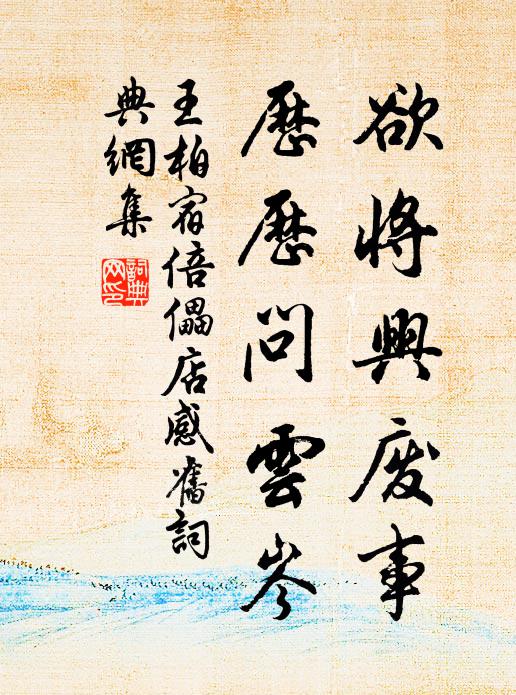 欲將興廢事
歷歷問雲岑
王柏宿倍儡店感舊詞
典網集
詞典網印